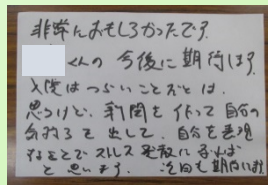 非常におもしろかったです。
くんの今後に期待します。
入院はつらいことだとは、
思うけど、新聞を作って自分の
気持ちを出して、自分を表現
することでストレス発散になれば
と思います。次回も期待します